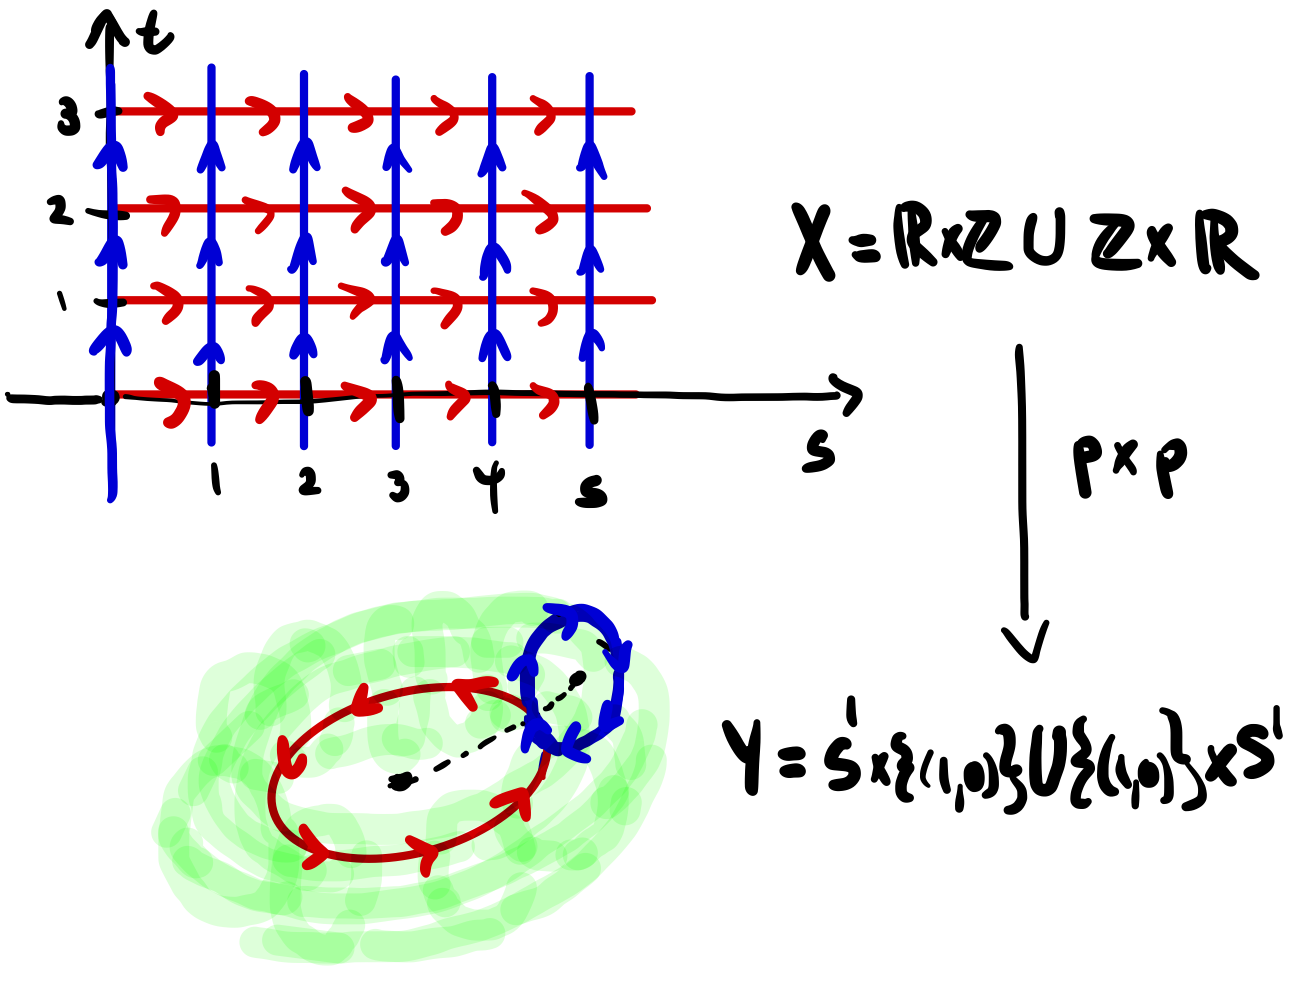 t
3
2
1
1 2 3 4 5
s
X = ℝ×ℤ ∪ ℤ×ℝ
p×p
Y = S¹×{(1,0)} ∪ {(1,0)}×S¹